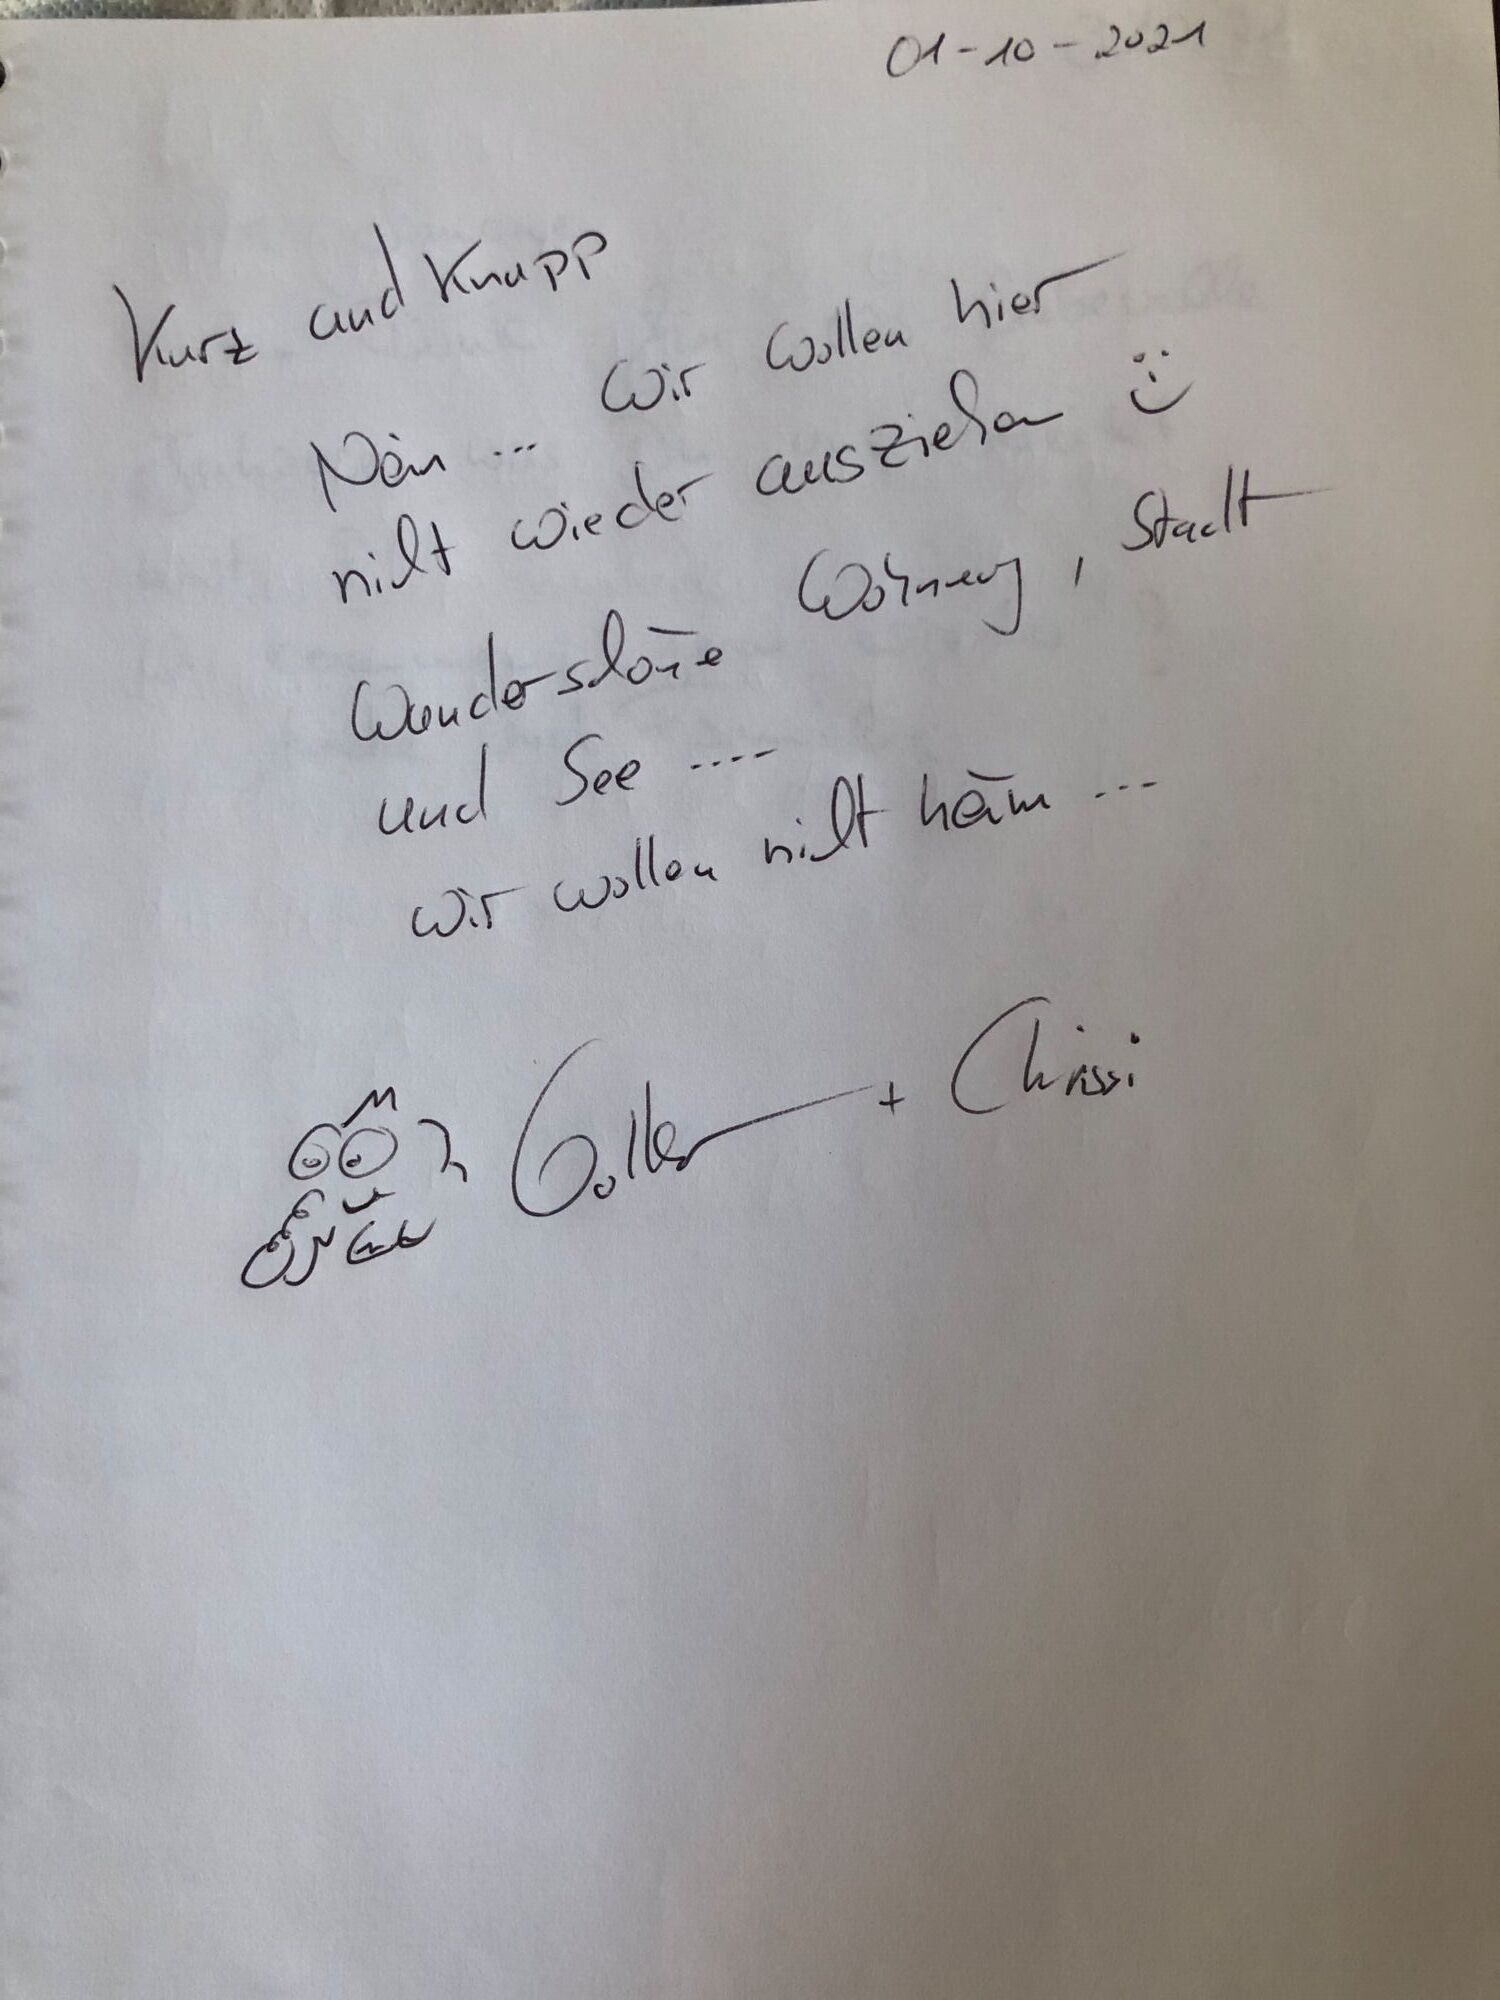 01-10-2021
Kurz und Knapp
Nein ... Wir wollen hier
nicht wieder ausziehen
Wunderschöne Wohnung, Stadt
und See ....
wir wollen nicht heim ...
+ Chrissi